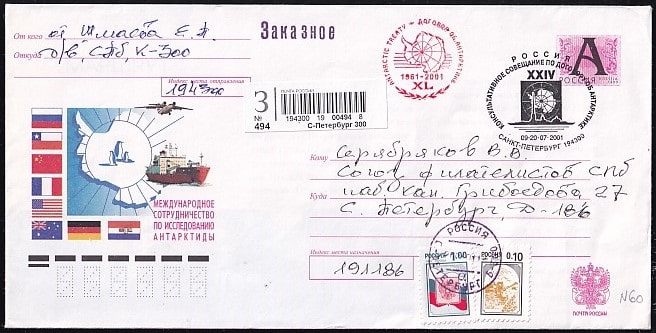 От кого от Шмагба Е.П.
Откуда п/в, СПб, К-300
Заказное
Индекс места отправления
194300
З
№ 494
ПОЧТА РОССИИ
194300 19 00494 8
С-Петербург 300
ANTARCTIC TREATY – ДОГОВОР ОБ АНТАРКТИКЕ
1961-2001
XL
РОССИЯ
КОНСУЛЬТАТИВНОЕ СОВЕЩАНИЕ ПО ДОГОВОРУ ОБ АНТАРКТИКЕ
XXIV
09-20-07-2001
САНКТ-ПЕТЕРБУРГ 194300
А
РОССИЯ
МЕЖДУНАРОДНОЕ
СОТРУДНИЧЕСТВО
ПО ИССЛЕДОВАНИЮ
АНТАРКТИДЫ
Кому Серябряков В.В.
Союз филателистов СПб
Куда наб. кан. Грибоедова 27
С. Петербург, Д-186
Индекс места назначения
191186
РОССИЯ
1.00
РОССИЯ 0.10
ПОЧТА РОССИИ
N60